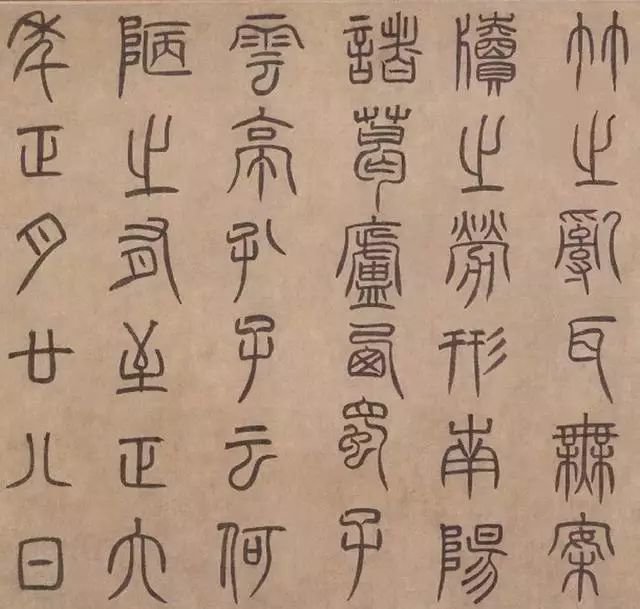 竹之亂耳無案
牘之勞形南陽
諸葛廬西蜀子
雲亭孔子云何
陋之有至正六
年正月廿八日